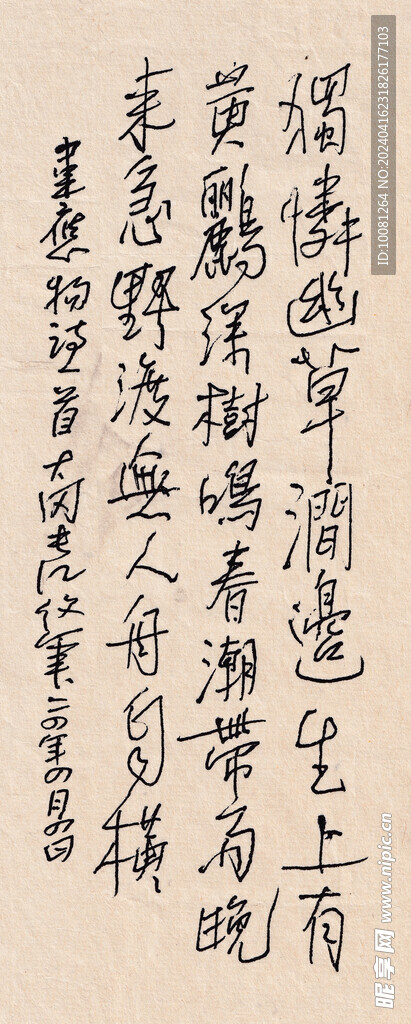 獨憐幽草澗邊生上有
黄鸝深樹鳴春潮帶雨晚
来急野渡無人舟自橫
韋應物詩一首 二四年四月四日
ID:10081264 NO:20240416231826177103
昵享网 www.nipic.cn